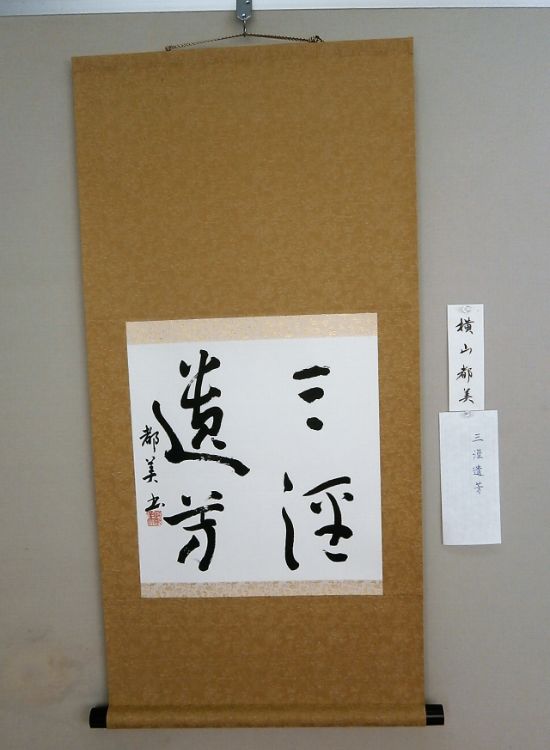 三淫
遺芳
都美書
横山都美
三淫遺芳